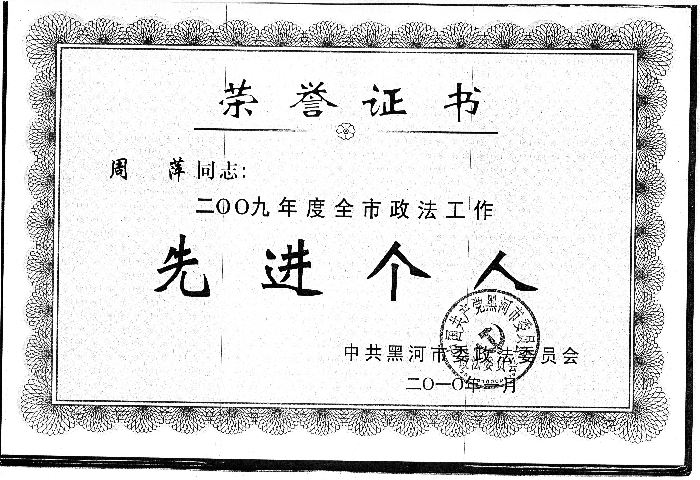 荣誉证书
周 萍 同志:
二〇〇九年度全市政法工作
先进个人
中国共产党黑河市委员会
政法委员会
中共黑河市委政法委员会
二〇一〇年一月